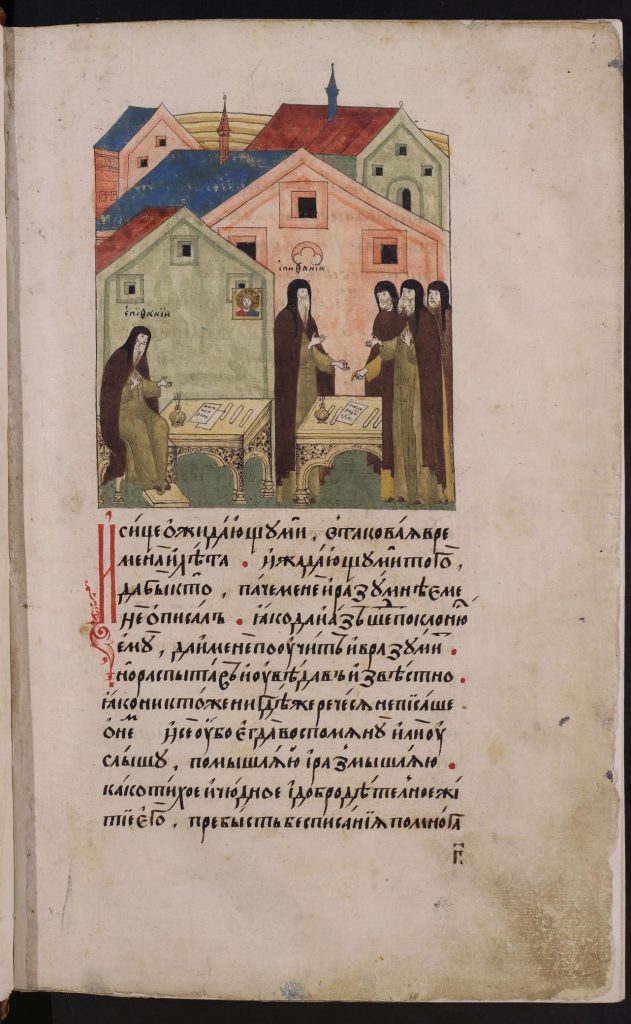 є҆пиѳанїи
є҆пїѳанїи
И҆ сице ѻ҆жидаю́щꙋ ми, в̾ такова́ꙗ вре
мена̀ и҆ лѣ́та . и҆ жада́ющꙋ ми того̀,
дабы̀ кто̀, па́че менє̀ и҆ разꙋмнѣ́є ме
нє̀ ѻ҆писа́лъ . ꙗ҆́ко да и҆ а҆́зъ шⷣе поклоню̀
є҆мꙋ̀, да и҆ менє̀ пооучи́тъ и҆ вразꙋми́тⷮ .
но распыта́въ и҆ оувѣ́давъ и҆звѣ́стно
ꙗ҆ко никто́же нигдѣ́же речесѧ не писа́ше
ѻ҆ неⷨ . и҆ сѐ оу҆́бо є҆гда̀ воспомѧнꙋ̀ и҆лѝ оу
слы́шꙋ, помышлѧ́ю и҆ размышлѧ́ю .
ка́ко ти́хое и҆ чю́дное и҆ добродѣ́телное жї
тїѐ є҆гѡ̀, пребы́сть бес писа́нїѧ по мно́га
г҃